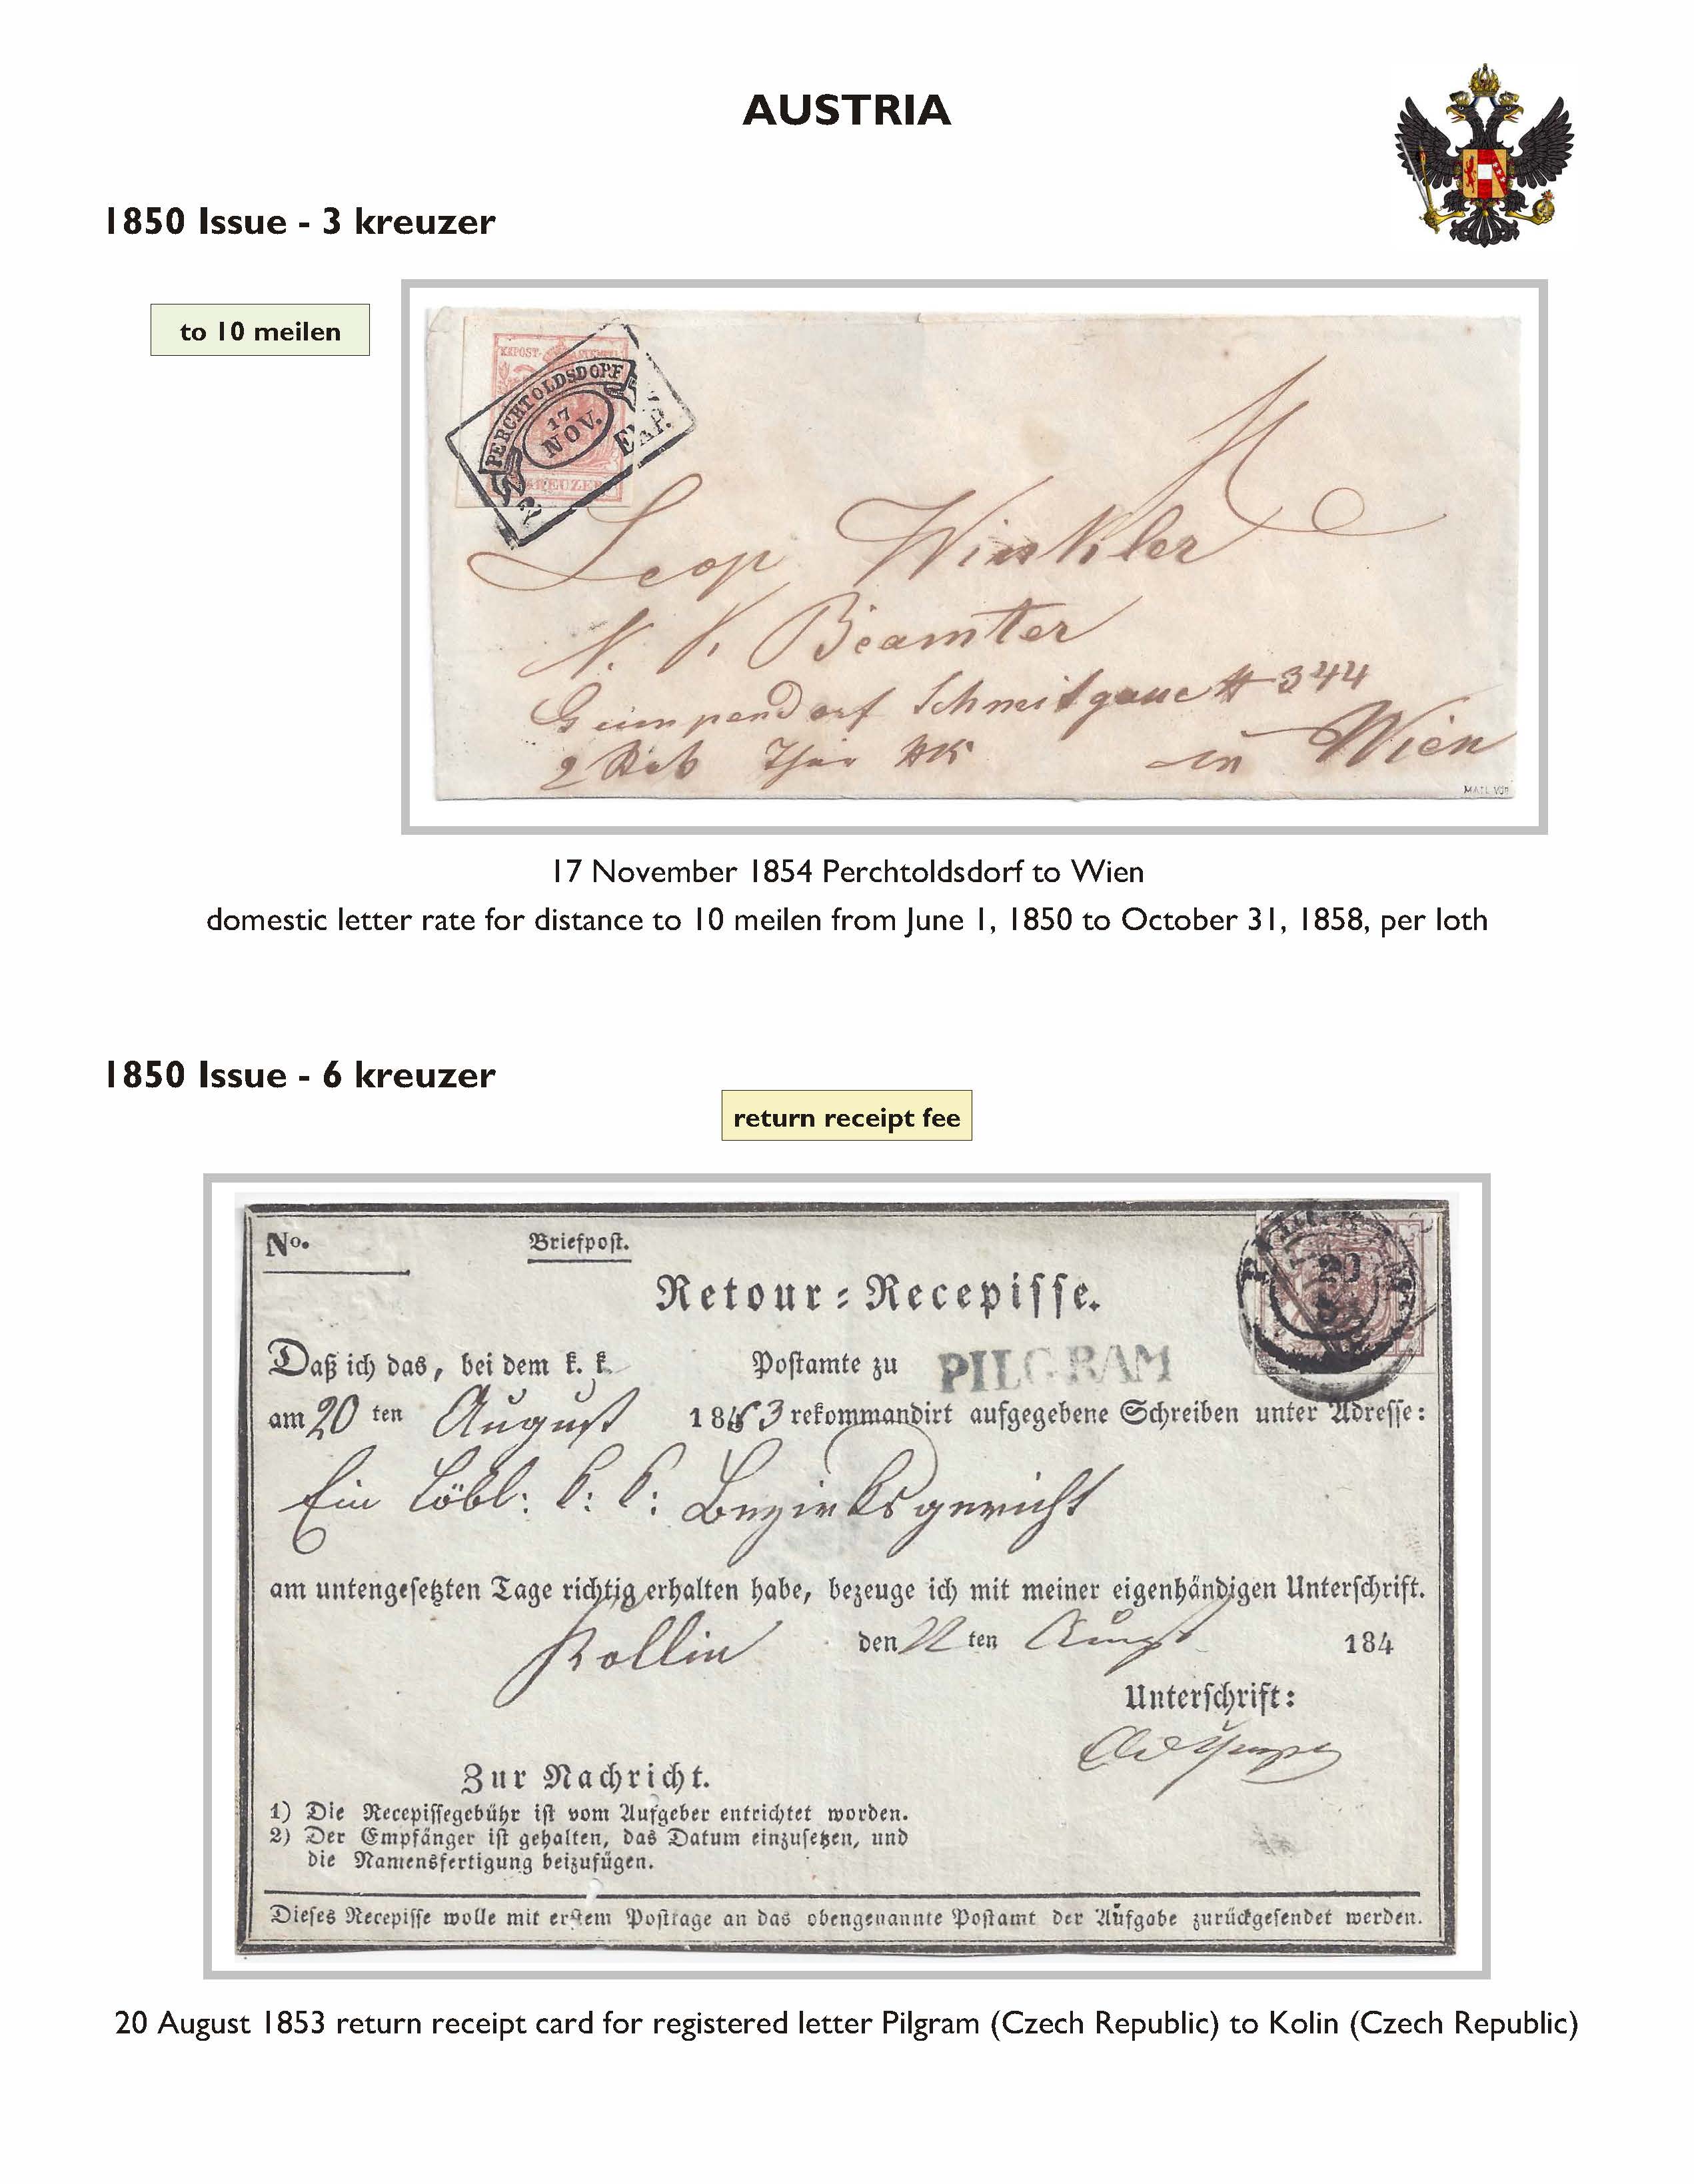 AUSTRIA
1850 Issue - 3 kreuzer
to 10 meilen
PERCHTOLDSDORF
17
NOV.
EXP.
KREUZER
Leop Winkler
Beamter
Gumpendorf # 344
2
in Wien
1
17 November 1854 Perchtoldsdorf to Wien
domestic letter rate for distance to 10 meilen from June 1, 1850 to October 31, 1858, per loth
1850 Issue - 6 kreuzer
return receipt fee
No.
Briefpost.
Retour-Recepisse.
20
Daß ich das, bei dem k. k. Postamte zu PILGRAM
am 20 ten August 1853 rekommandirt aufgegebene Schreiben unter Adresse:
Ein Löbl: k: k: Bezirksgericht
am untengesetzten Tage richtig erhalten habe, bezeuge ich mit meiner eigenhändigen Unterschrift.
Kollin den 22 ten August 184
Unterschrift:
Zur Nachricht.
1) Die Recepissegebühr ist vom Aufgeber entrichtet worden.
2) Der Empfänger ist gehalten, das Datum einzusetzen, und
die Namensfertigung beizufügen.
Dieses Recepisse wolle mit erstem Posttage an das obengenannte Postamt der Aufgabe zurückgesendet werden.
20 August 1853 return receipt card for registered letter Pilgram (Czech Republic) to Kolin (Czech Republic)